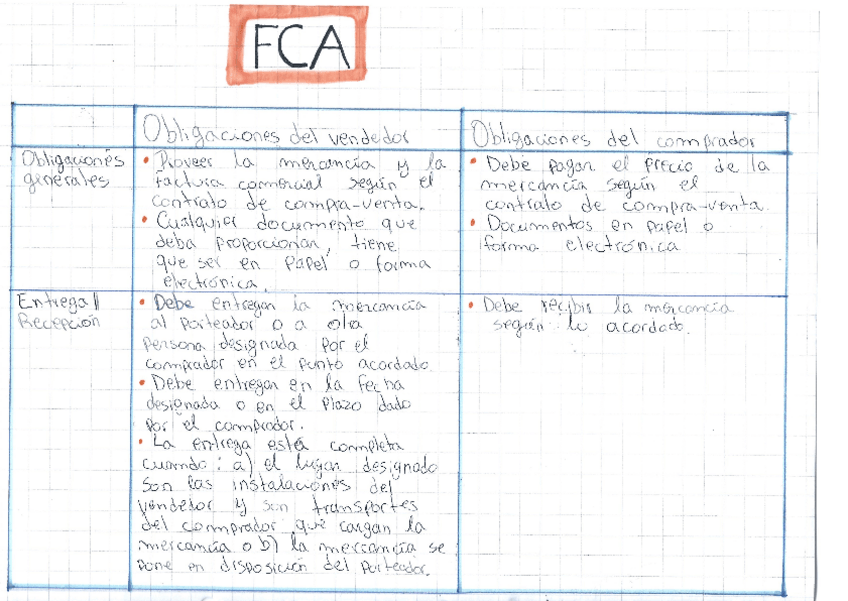 FCA
Obligaciones del vendedor
Obligaciones del comprador
Obligaciones
generales
• Proveer la mercancía y la
factura comercial según el
contrato de compra-venta.
• Cualquier documento que
deba proporcionar, tiene
que ser en papel o forma
electrónica.
• Debe pagar el precio de la
mercancía según el
contrato de compra-venta.
• Documentos en papel o
forma electrónica
Entrega //
Recepción
• Debe entregar la mercancía
al porteador o a otra
persona designada por el
comprador en el punto acordado.
• Debe entregar en la fecha
designada o en el plazo dado
por el comprador.
• La entrega está completa
cuando: a) el lugar designado
son las instalaciones del
vendedor y son transportes
del comprador que cargan la
mercancía o b) la mercancía se
pone en disposición del porteador.
• Debe recibir la mercancía
según lo acordado.